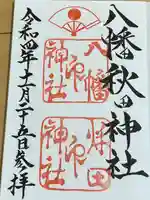 八幡秋田神社
八幡神社
秋田神社
令和四年十一月二十五日参拝